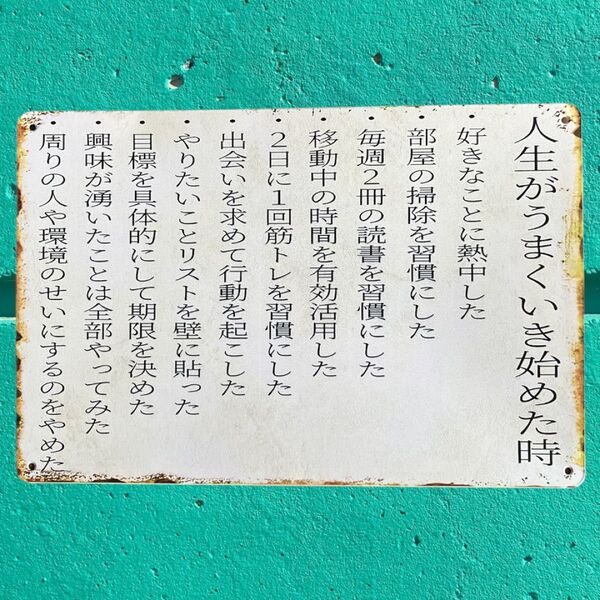 人生がうまくいき始めた時
・好きなことに熱中した
・部屋の掃除を習慣にした
・毎週2冊の読書を習慣にした
・移動中の時間を有効活用した
・2日に1回筋トレを習慣にした
・出会いを求めて行動を起こした
・やりたいことリストを壁に貼った
・目標を具体的にして期限を決めた
・興味が湧いたことは全部やってみた
・周りの人や環境のせいにするのをやめた